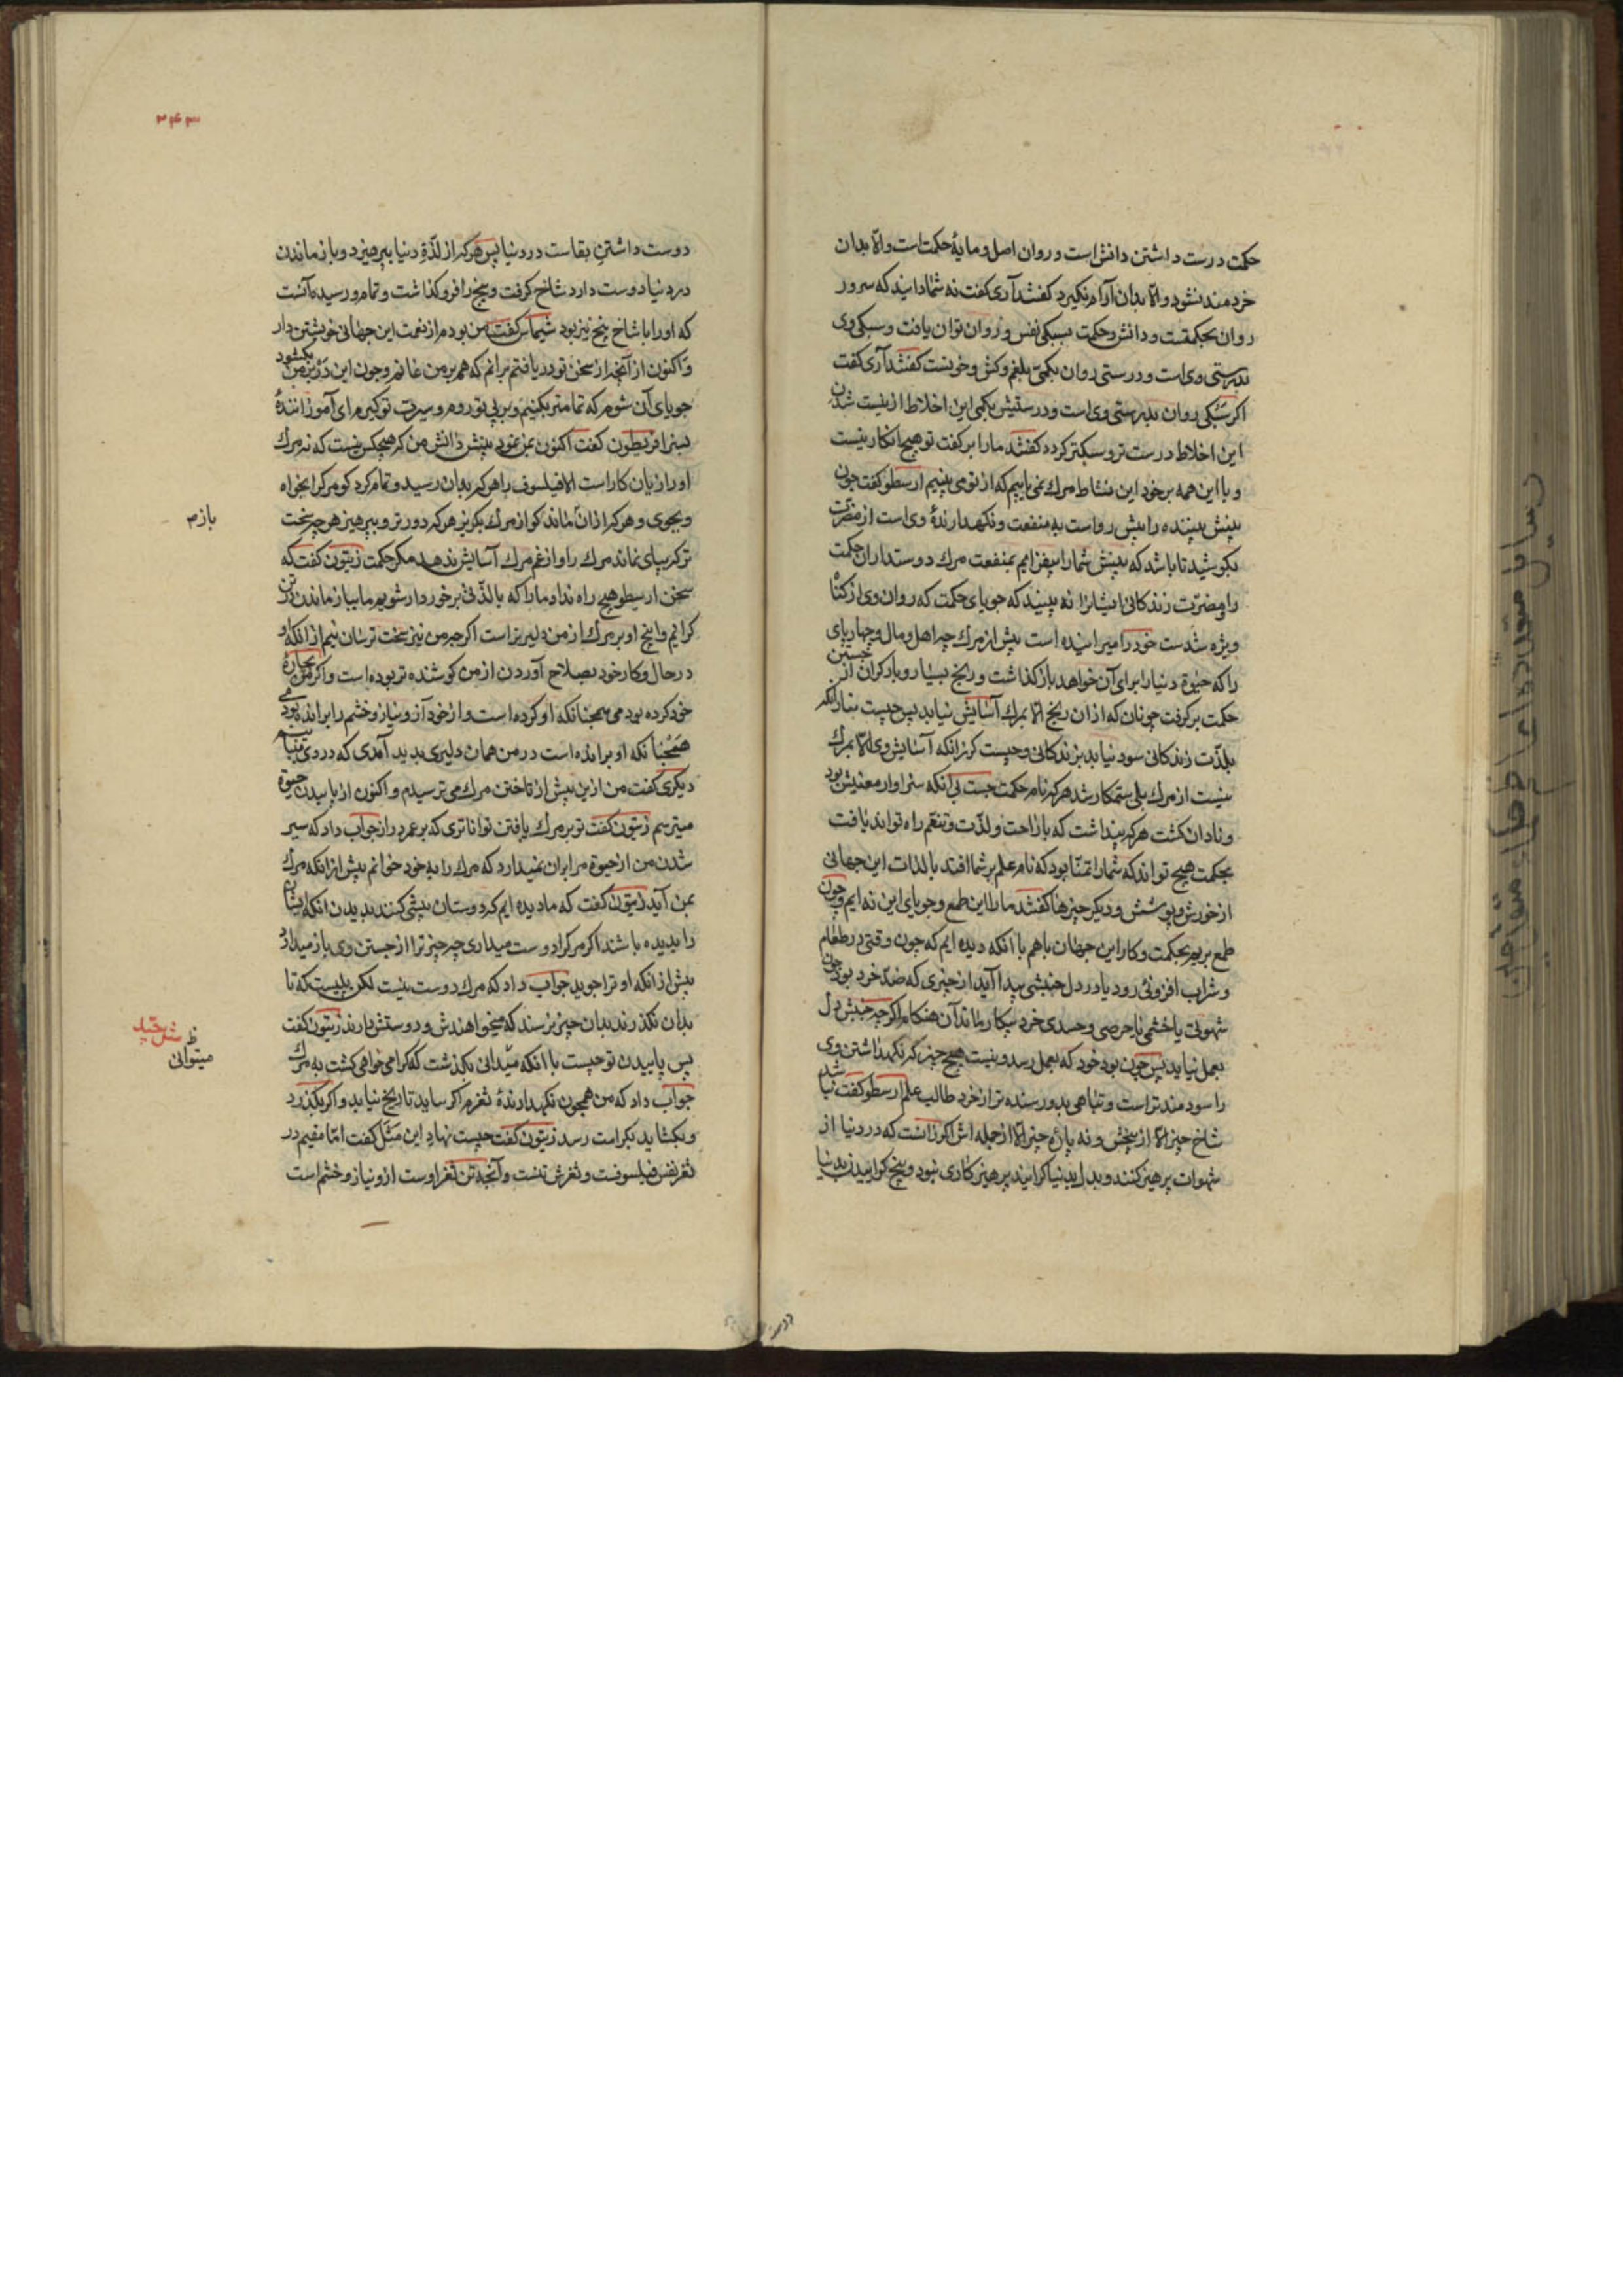 حکمت درست داشتن دانش است و روان اصل و مایهٔ حکمت است و الّا بدان
خردمند نشود و الّا بدان آرام نگیرد گفتند آری گفت نه شما دانید که سرور
روان بحکمتست و دانش و حکمت بسبکی نفس و روان توان یافت و سبکی وی
بدرستی وی است و درستی روان بکمی بلغم و کش و خونست گفتند آری گفت
اگر سبکی روان بدرستی وی است و درستیش بکمی این اخلاط از نیست شدن
این اخلاط درست تر و سبکتر گردد گفتند ما را بر گفت تو هیچ انکار نیست
و با این همه بر خود این نشاط مرگ نمی یابیم که از تو می بینیم ارسطو گفت چون
بینش بیننده را پیش رواست به منفعت و نگهدارندهٔ وی است از مضرّت
بکوشید تا باشد که بینش شما را بیفزایم بمنفعت مرگ دوستداران حکمت
را و مضرّت زندگانی ایشانرا نه بینید که جویای حکمت که روان وی از گناه
ویژه شدست خود را میرانیده است پیش از مرگ چه اهل و مال و چهارپای
را که حیوة دنیا را برای آن خواهد باز گذاشت و رنج بسیار و بار گران از جستن
حکمت بر گرفت چونان که از ان رنج الّا بمرگ آسایش نیابد پس چیست نیاز آنکه
بلذّت زندگانی سود نیابد بزندگانی و چیست گریز آنکه آسایش وی الّا بمرگ
نیست از مرگ بلی ستمکار شد هر که نام حکمت جست بی آنکه سزاوار معنیش بود
و نادان گشت هر که پنداشت که با راحت و لذّت و تنعّم راه تواند یافت
بحکمت هیچ تواند که شما را تمنّا بود که نام علم بر شما افتد با لذات این جهانی
از خورش و پوشش و دیگر چیزها گفتند ما را این طمع و جویای این نه ایم و چون
طمع بریم بحکمت و کار این جهان باهم با آنکه دیده ایم که چون وقتی در طعام
و شراب افزونی رود یا در دل جنبشی پیدا آید از چیزی که ضدّ خرد بود چون
شهوتی یا خشمی یا حرصی و حسدی خرد بیکار ماند آن هنگام اگر چه جنبش دل
بعمل نیاید پس چون بود خود که بعمل رسد و نیست هیچ چیز که نگهداشتن وی
را سودمند تر است و تباهی بدو رسنده تر از خرد طالب علم ارسطو گفت نباشد
شاخ چیز الّا از بیخش و نه پارهٔ چیز الّا از جمله اش اگر زانست که در دنیا از
شهوات پرهیز کنند و بدل بدنیا گرایند پرهیزکاری نبود و بیخ گراییدن بدنیا
دوست
۲۴۳
دوست داشتن بقاست در دنیا پس هر که از لذّة دنیا بپرهیزد و باز ماندن
در دنیا دوست دارد شاخ گرفت و بیخ را فرو گذاشت و تمام و رسیده آنست
که او را با شاخ بیخ نیز بود شیماس گفت من بودم از نعمت این جهانی خویشتن دار
و اکنون از آنچه از سخن تو دریافتم برانم که همه بر من غانم و چون این در بر من بگشود
جویای آن شوم که تمامتر بکنیم و بر پی تو روم و سیرت تو گیرم ای آموزانندهٔ
بسزا قریطون گفت اکنون بمن نمود بینش دانش من که هیچکس نیست که نه مرگ
او را زیان کار است الا فیلسوف را هر که بدان رسید و تمام کرد گو مرگ را بخواه
و بجوی و هر که از ان بماند گو از مرگ بگریز هر که دورتر و بپرهیز هر چه سخت
بازم
تر که پپای نماند مرگ را و از غم مرگ آسایش ندهد مگر حکمت زیتون گفت که
سخن ارسطو هیچ راه نداد ما را که با لذّتی برخوردار شویم ما بباز ماندن در تن
گرانیم و آنچ او بر مرگ از من دلیرتر است اگر چه من نیز سخت ترسان نیم از انکه او
در حال و کار خود بصلاح آوردن از من کوشنده تر بوده است و اگر من بچارهٔ
خود کرده بودمی همچنانکه او کرده است و از خود آز و نیاز و خشم را برانده بودمی
همچنانکه او برانده است در من همان دلیری پدید آمدی که در وی می بینم
دیگری گفت من از ین پیش از تاختن مرگ می ترسیدم و اکنون از پاییدن حیوة
میترسم زیتون گفت تو بر مرگ یافتن تواناتری که بر عمر دراز جواب داد که سیر
شدن من از حیوة مرا بران نمیدارد که مرگ را به خود خوانم پیش از انکه مرگ
بمن آید زیتون گفت که ما دیده ایم که دوستان پیشی کنند بدیدن آنکه ایشان
را بدیده باشند اگر مرگ را دوست میداری چه چیز ترا از جستن وی باز میدارد
پیش از انکه او ترا جوید جواب داد که مرگ دوست نیست لکن پلیست که تا
بدان نگذرند بدان چیز نرسند که میخواهندش و دوستش دارند زیتون گفت
میتوانی
پس پاییدن تو چیست با آنکه میدانی بگذشت که گرامی خواهی گشت به مرگ
جواب داد که من همچون نگهدارندهٔ ثغرم اگر ساید تا رنج نیابد و اگر بگذرد
و بگشاید بکرامت رسد زیتون گفت چیست نهاد این مثل گفت امّا مقیم در
ثغر نفس فیلسوفست و ثغرش تنست و آنچه تن ثغر اوست از و نیاز و خشم است